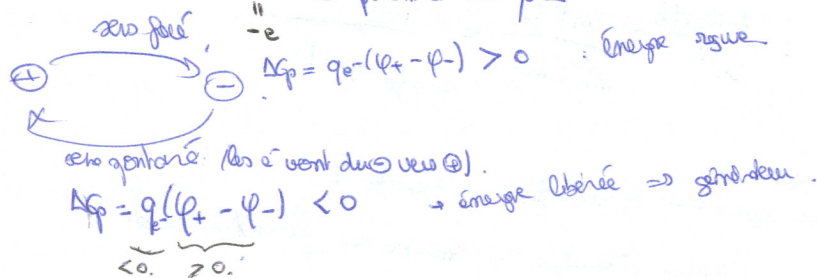 sens forcé,
"
-e
+ -
ΔGp = qe-(φ+ - φ-) > 0 : énergie reçue
sens spontané (les é vont du ⊖ vers ⊕).
ΔGp = qe-(φ+ - φ-) < 0 → énergie libérée ⇒ générateur.
<0. >0.